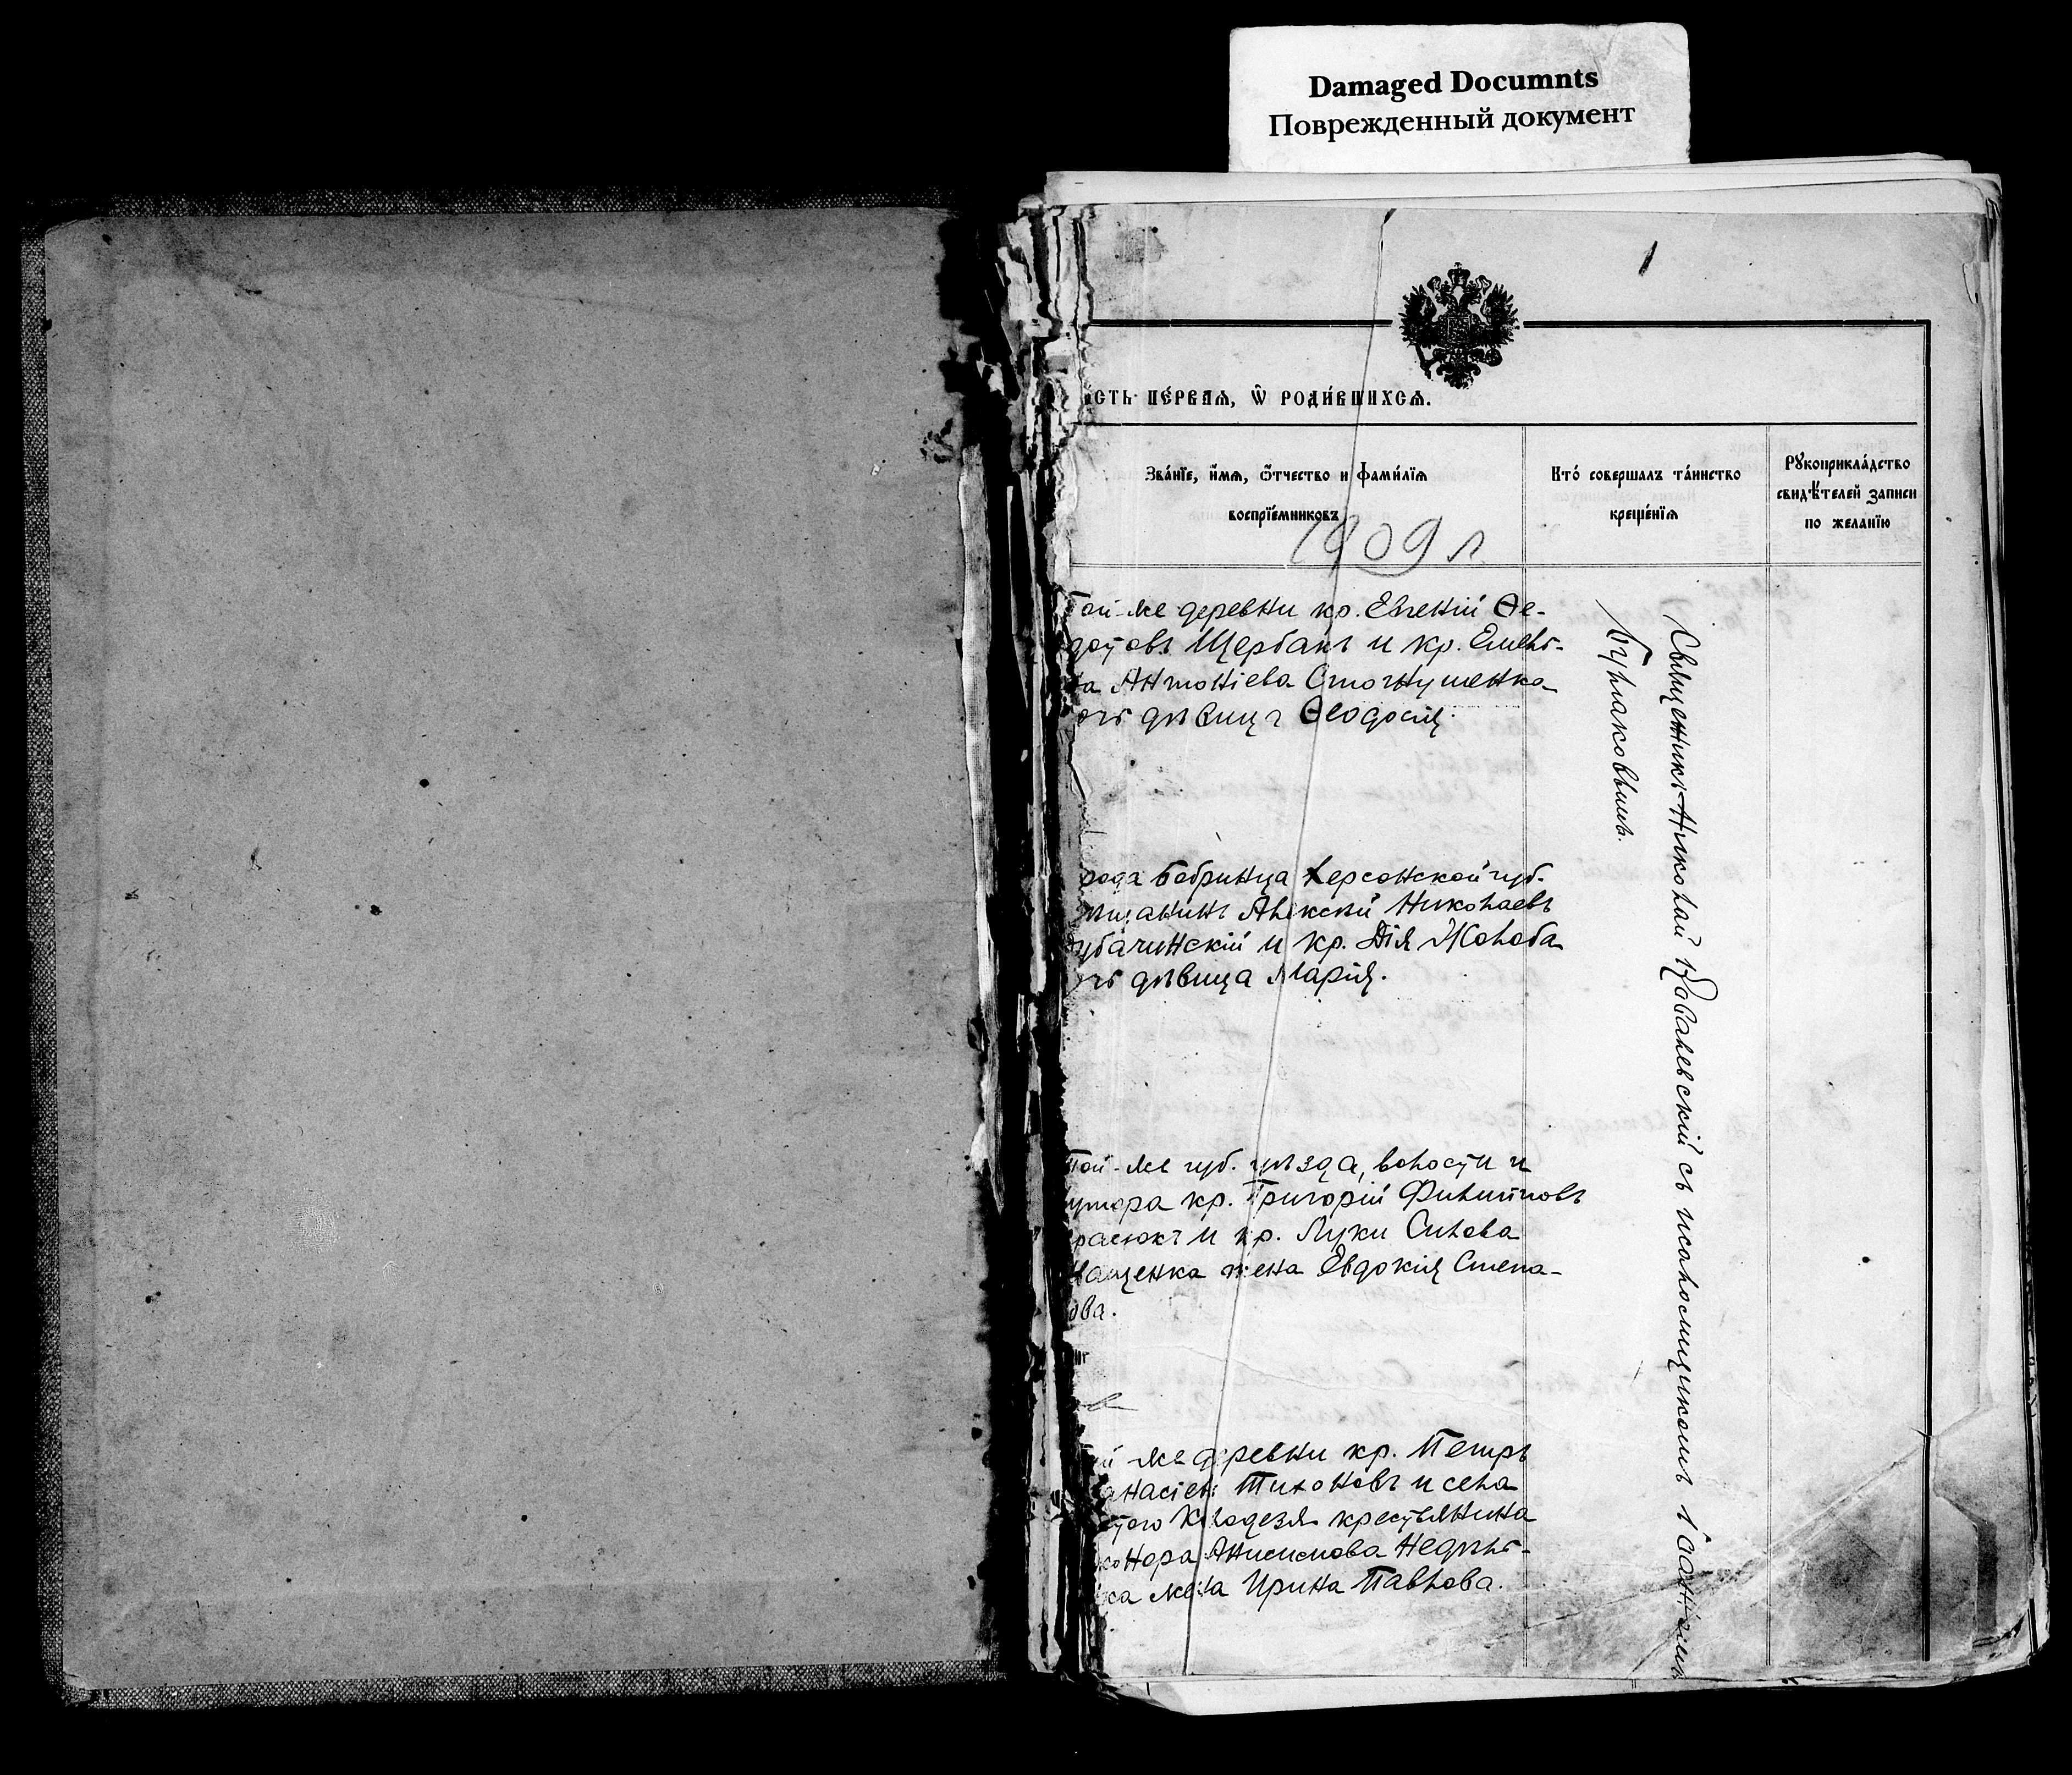 Damaged Documnts
Поврежденный документ
1
сть пе́рваѧ, ѿ роди́вшихсѧ.
Зва́нїе, и́мѧ, ѻ́тчество и фами́лїѧ
воспрїе́мниковъ
Кто́ соверша́лъ та́инство
креще́нїѧ
Рꙋкоприкла́дство
свидѣ́телей записи
по жела́нїю
1909 г
той-же деревни кр. Евгеній Ѳе-
дотовъ Щербакъ и кр. Емель-
на Антоніева
дочь дѣвица Ѳеодосія.
рода Бобринца Херсонской губ.
мѣщанинъ Алексѣй Николаевъ
убачинскій и кр. Дія Жолоба
дочь дѣвица Марія.
той-же губ. уѣзда, волости и
хутора кр. Григорій Филипповъ
расюкъ и кр. Луки Силова
нащенка жена Евдокія Степа-
ова.
ой же деревни кр. Петръ
анасіевъ Тихоновъ и села
стого Колодезя крестьянина
конора Анисимова Недѣль-
ка жена Ирина Павлова.
Священникъ Николай Ковалевскій съ псаломщикомъ Іоанномъ
Булаковымъ.